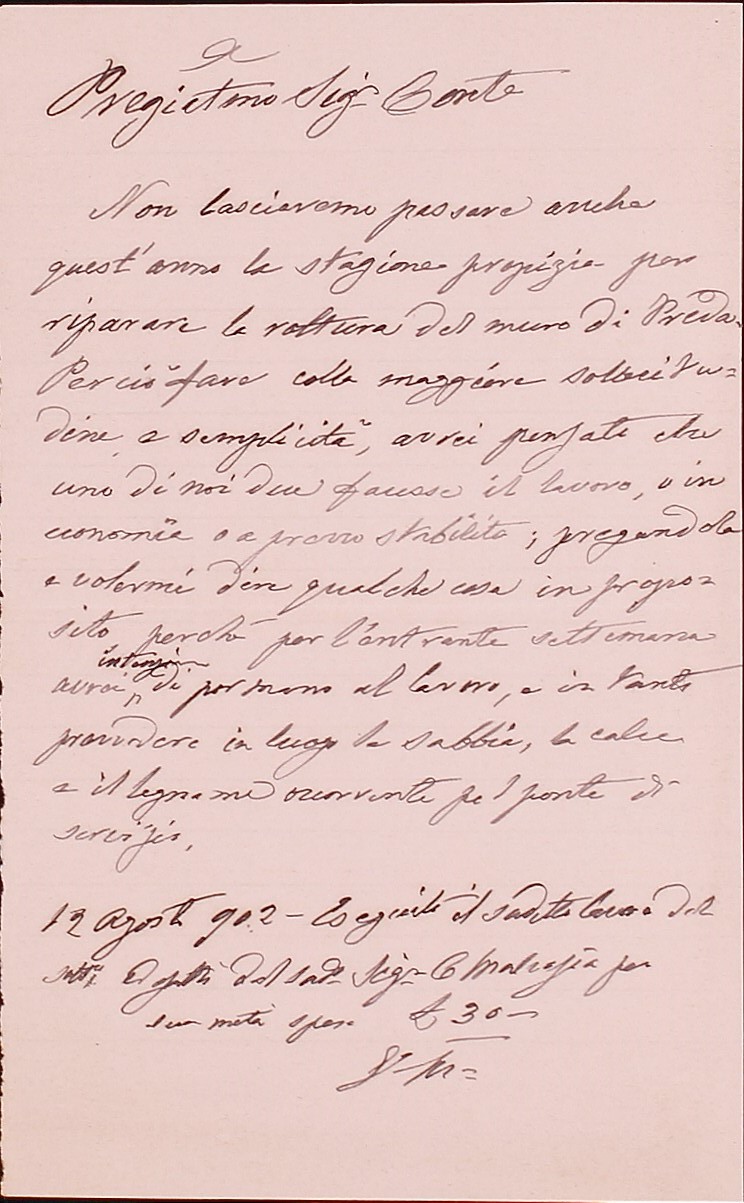 Pregiatmo Sigr Conte
Non lasciaremo passare anche
quest'anno la stagione propizia per
riparare la rottura del muro di Preda.
Perciò fare colla maggiore sollecitu=
dine, e semplicità, avrei pensato che
uno di noi due facesse il lavoro, o in
economia o a prezzo stabilito; pregandola
a volermi dire qualche cosa in propo=
sito perchè per l'entrante settimana
intenzione
avrei di por mano al lavoro, e in tanto
provvedere in luogo la sabbia, la calce
e il legname occorrente pel ponte di
servizio,
12 Agosto 902 – Eseguito il sudetto lavoro dal
dal sudo Sigr C Malvasia per
sua metà spese £ 30 –